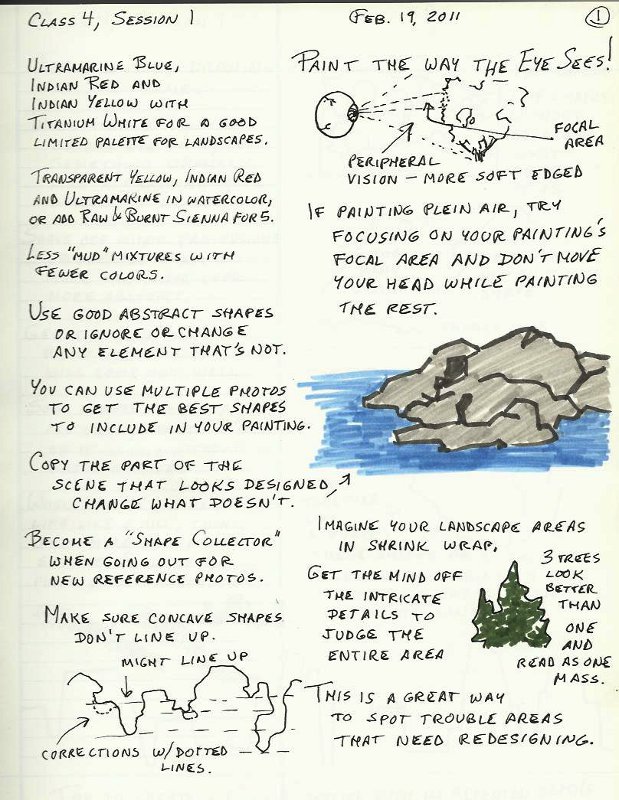 CLASS 4, SESSION 1
FEB. 19, 2011
1
ULTRAMARINE BLUE,
INDIAN RED AND
INDIAN YELLOW WITH
TITANIUM WHITE FOR A GOOD
LIMITED PALETTE FOR LANDSCAPES.
TRANSPARENT YELLOW, INDIAN RED
AND ULTRAMARINE IN WATERCOLOR,
OR ADD RAW & BURNT SIENNA FOR 5.
LESS "MUD" MIXTURES WITH
FEWER COLORS.
USE GOOD ABSTRACT SHAPES
OR IGNORE OR CHANGE
ANY ELEMENT THAT'S NOT.
YOU CAN USE MULTIPLE PHOTOS
TO GET THE BEST SHAPES
TO INCLUDE IN YOUR PAINTING.
COPY THE PART OF THE
SCENE THAT LOOKS DESIGNED,
CHANGE WHAT DOESN'T.
BECOME A "SHAPE COLLECTOR"
WHEN GOING OUT FOR
NEW REFERENCE PHOTOS.
MAKE SURE CONCAVE SHAPES
DON'T LINE UP.
MIGHT LINE UP
CORRECTIONS W/DOTTED
LINES.
PAINT THE WAY THE EYE SEES!
FOCAL
AREA
PERIPHERAL
VISION - MORE SOFT EDGED
IF PAINTING PLEIN AIR, TRY
FOCUSING ON YOUR PAINTING'S
FOCAL AREA AND DON'T MOVE
YOUR HEAD WHILE PAINTING
THE REST.
IMAGINE YOUR LANDSCAPE AREAS
IN SHRINK WRAP.
GET THE MIND OFF
THE INTRICATE
DETAILS TO
JUDGE THE
ENTIRE AREA
3 TREES
LOOK
BETTER
THAN
ONE
AND
READ AS ONE
MASS.
THIS IS A GREAT WAY
TO SPOT TROUBLE AREAS
THAT NEED REDESIGNING.